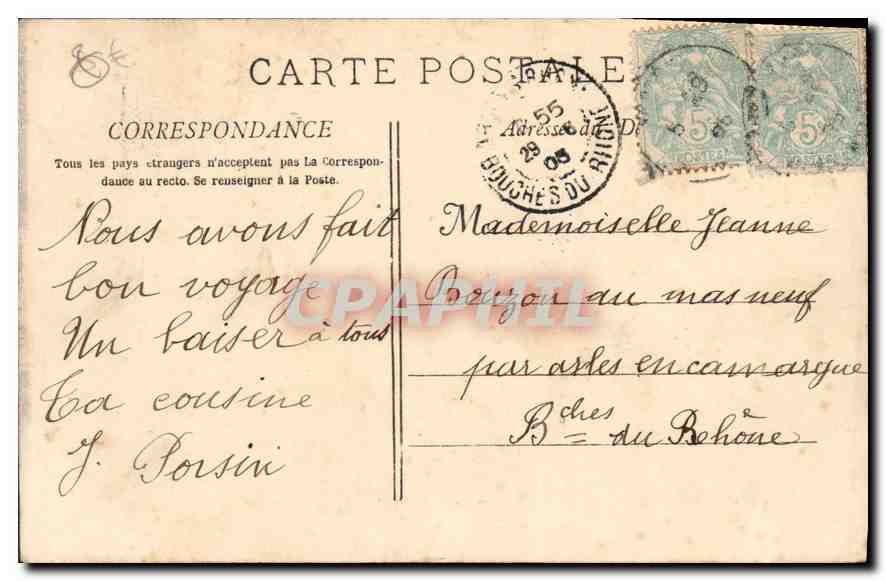 CARTE POSTALE
CORRESPONDANCE
Tous les pays étrangers n'acceptent pas La Correspon-
dance au recto. Se renseigner à la Poste.
Nous avons fait
bon voyage
Un baiser à tous
Ta cousine
J. Porsin
Adresse du De
55
29 6
05
BOUCHES DU RHONE
5
POSTES
5
POSTES
Mademoiselle Jeanne
Bouzon au mas neuf
par arles en camargue
Bches du Rehône
CPAPHIL